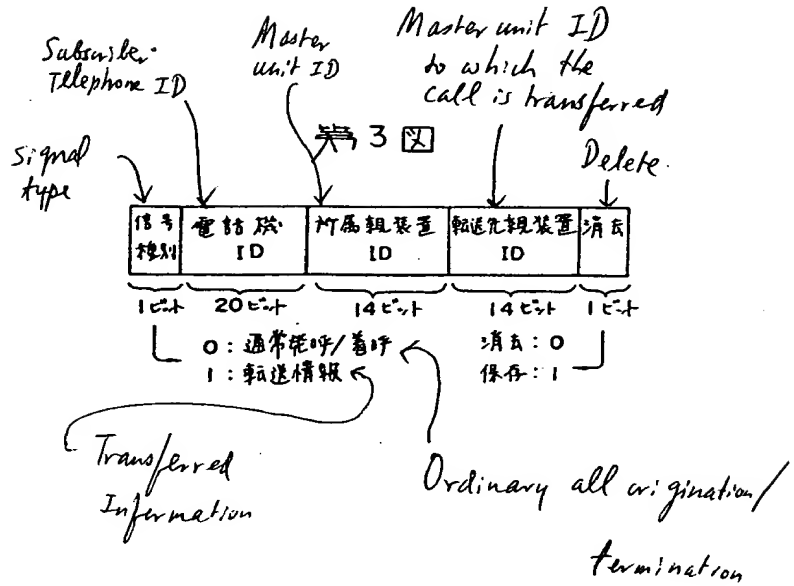 Subscriber
Telephone ID
Master
unit ID
Master unit ID
to which the
call is transferred
第3図
Signal
type
Delete.
信号
種別
電話機
ID
所属親装置
ID
転送先親装置
ID
消去
1ビット
20ビット
14ビット
14ビット
1ビット
0:通常発呼/着呼
1:転送情報
消去:0
保存:1
Transferred
Information
Ordinary all origination/
termination